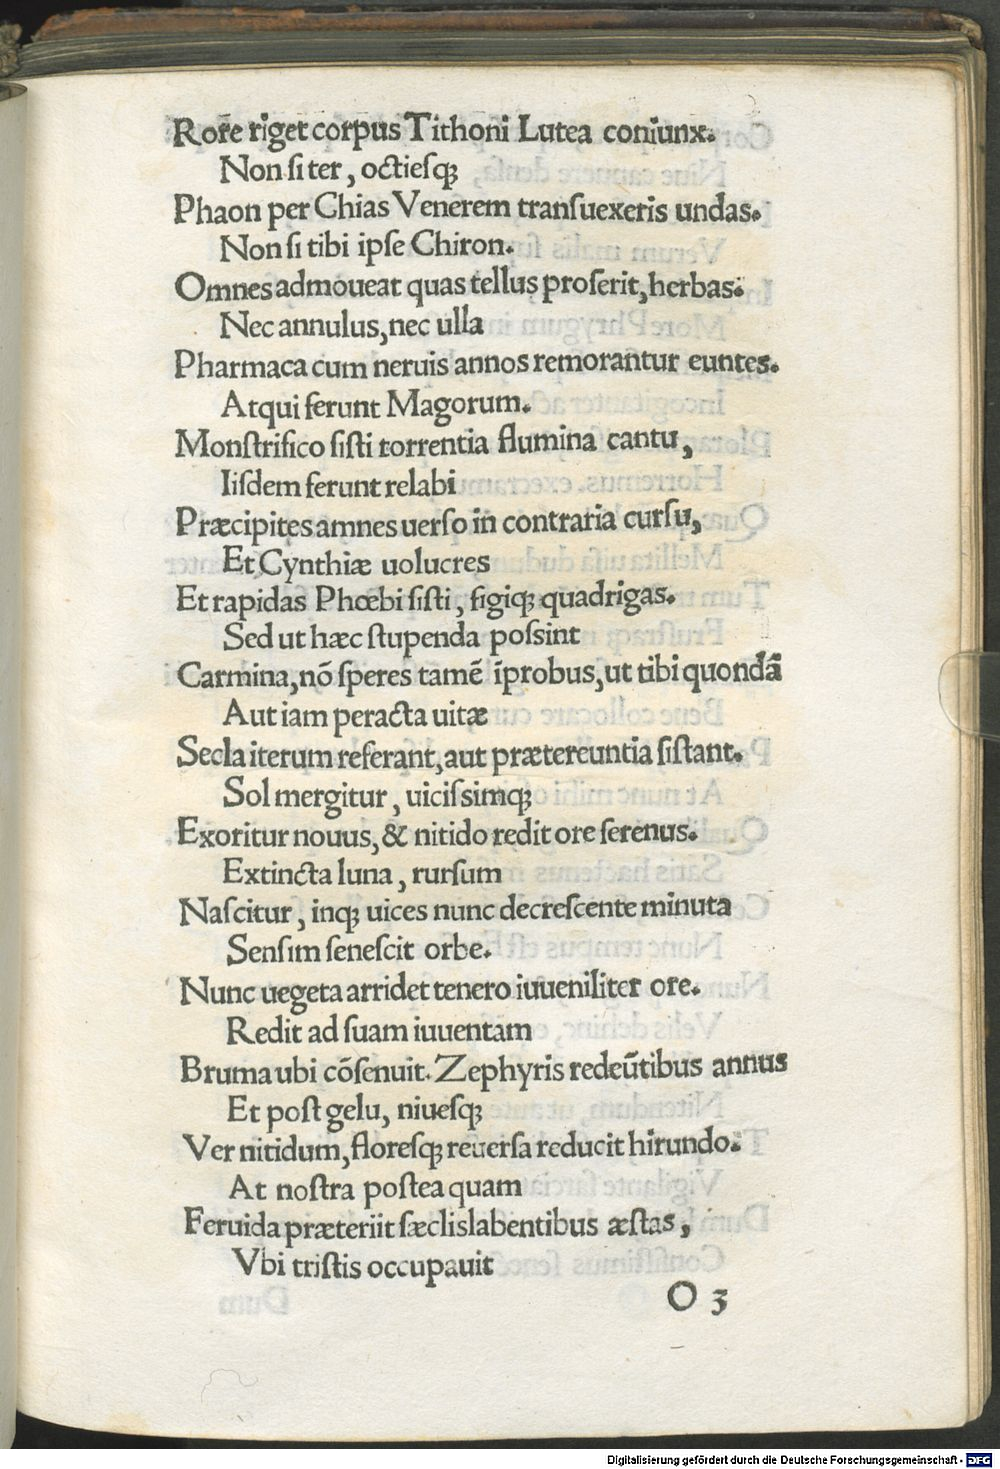 Rore riget corpus Tithoni Lutea coniunx.
Non si ter, octiesqꝫ
Phaon per Chias Venerem transuexeris undas.
Non si tibi ipse Chiron.
Omnes admoueat quas tellus proferit, herbas.
Nec annulus, nec ulla
Pharmaca cum neruis annos remorantur euntes.
Atqui ferunt Magorum.
Monstrifico sisti torrentia flumina cantu,
Iisdem ferunt relabi
Præcipites amnes uerso in contraria cursu,
Et Cynthiæ uolucres
Et rapidas Phœbi sisti, figiqꝫ quadrigas.
Sed ut hæc stupenda possint
Carmina, nō speres tamē īprobus, ut tibi quondā
Aut iam peracta uitæ
Secla iterum referant, aut prætereuntia sistant.
Sol mergitur, uicissimqꝫ
Exoritur nouus, & nitido redit ore serenus.
Extincta luna, rursum
Nascitur, inqꝫ uices nunc decrescente minuta
Sensim senescit orbe.
Nunc uegeta arridet tenero iuueniliter ore.
Redit ad suam iuuentam
Bruma ubi cōsenuit. Zephyris redeūtibus annus
Et post gelu, niuesqꝫ
Ver nitidum, floresqꝫ reuersa reducit hirundo.
At nostra postea quam
Feruida præteriit sæclis labentibus æstas,
Vbi tristis occupauit
O 3
Digitalisierung gefördert durch die Deutsche Forschungsgemeinschaft - DFG